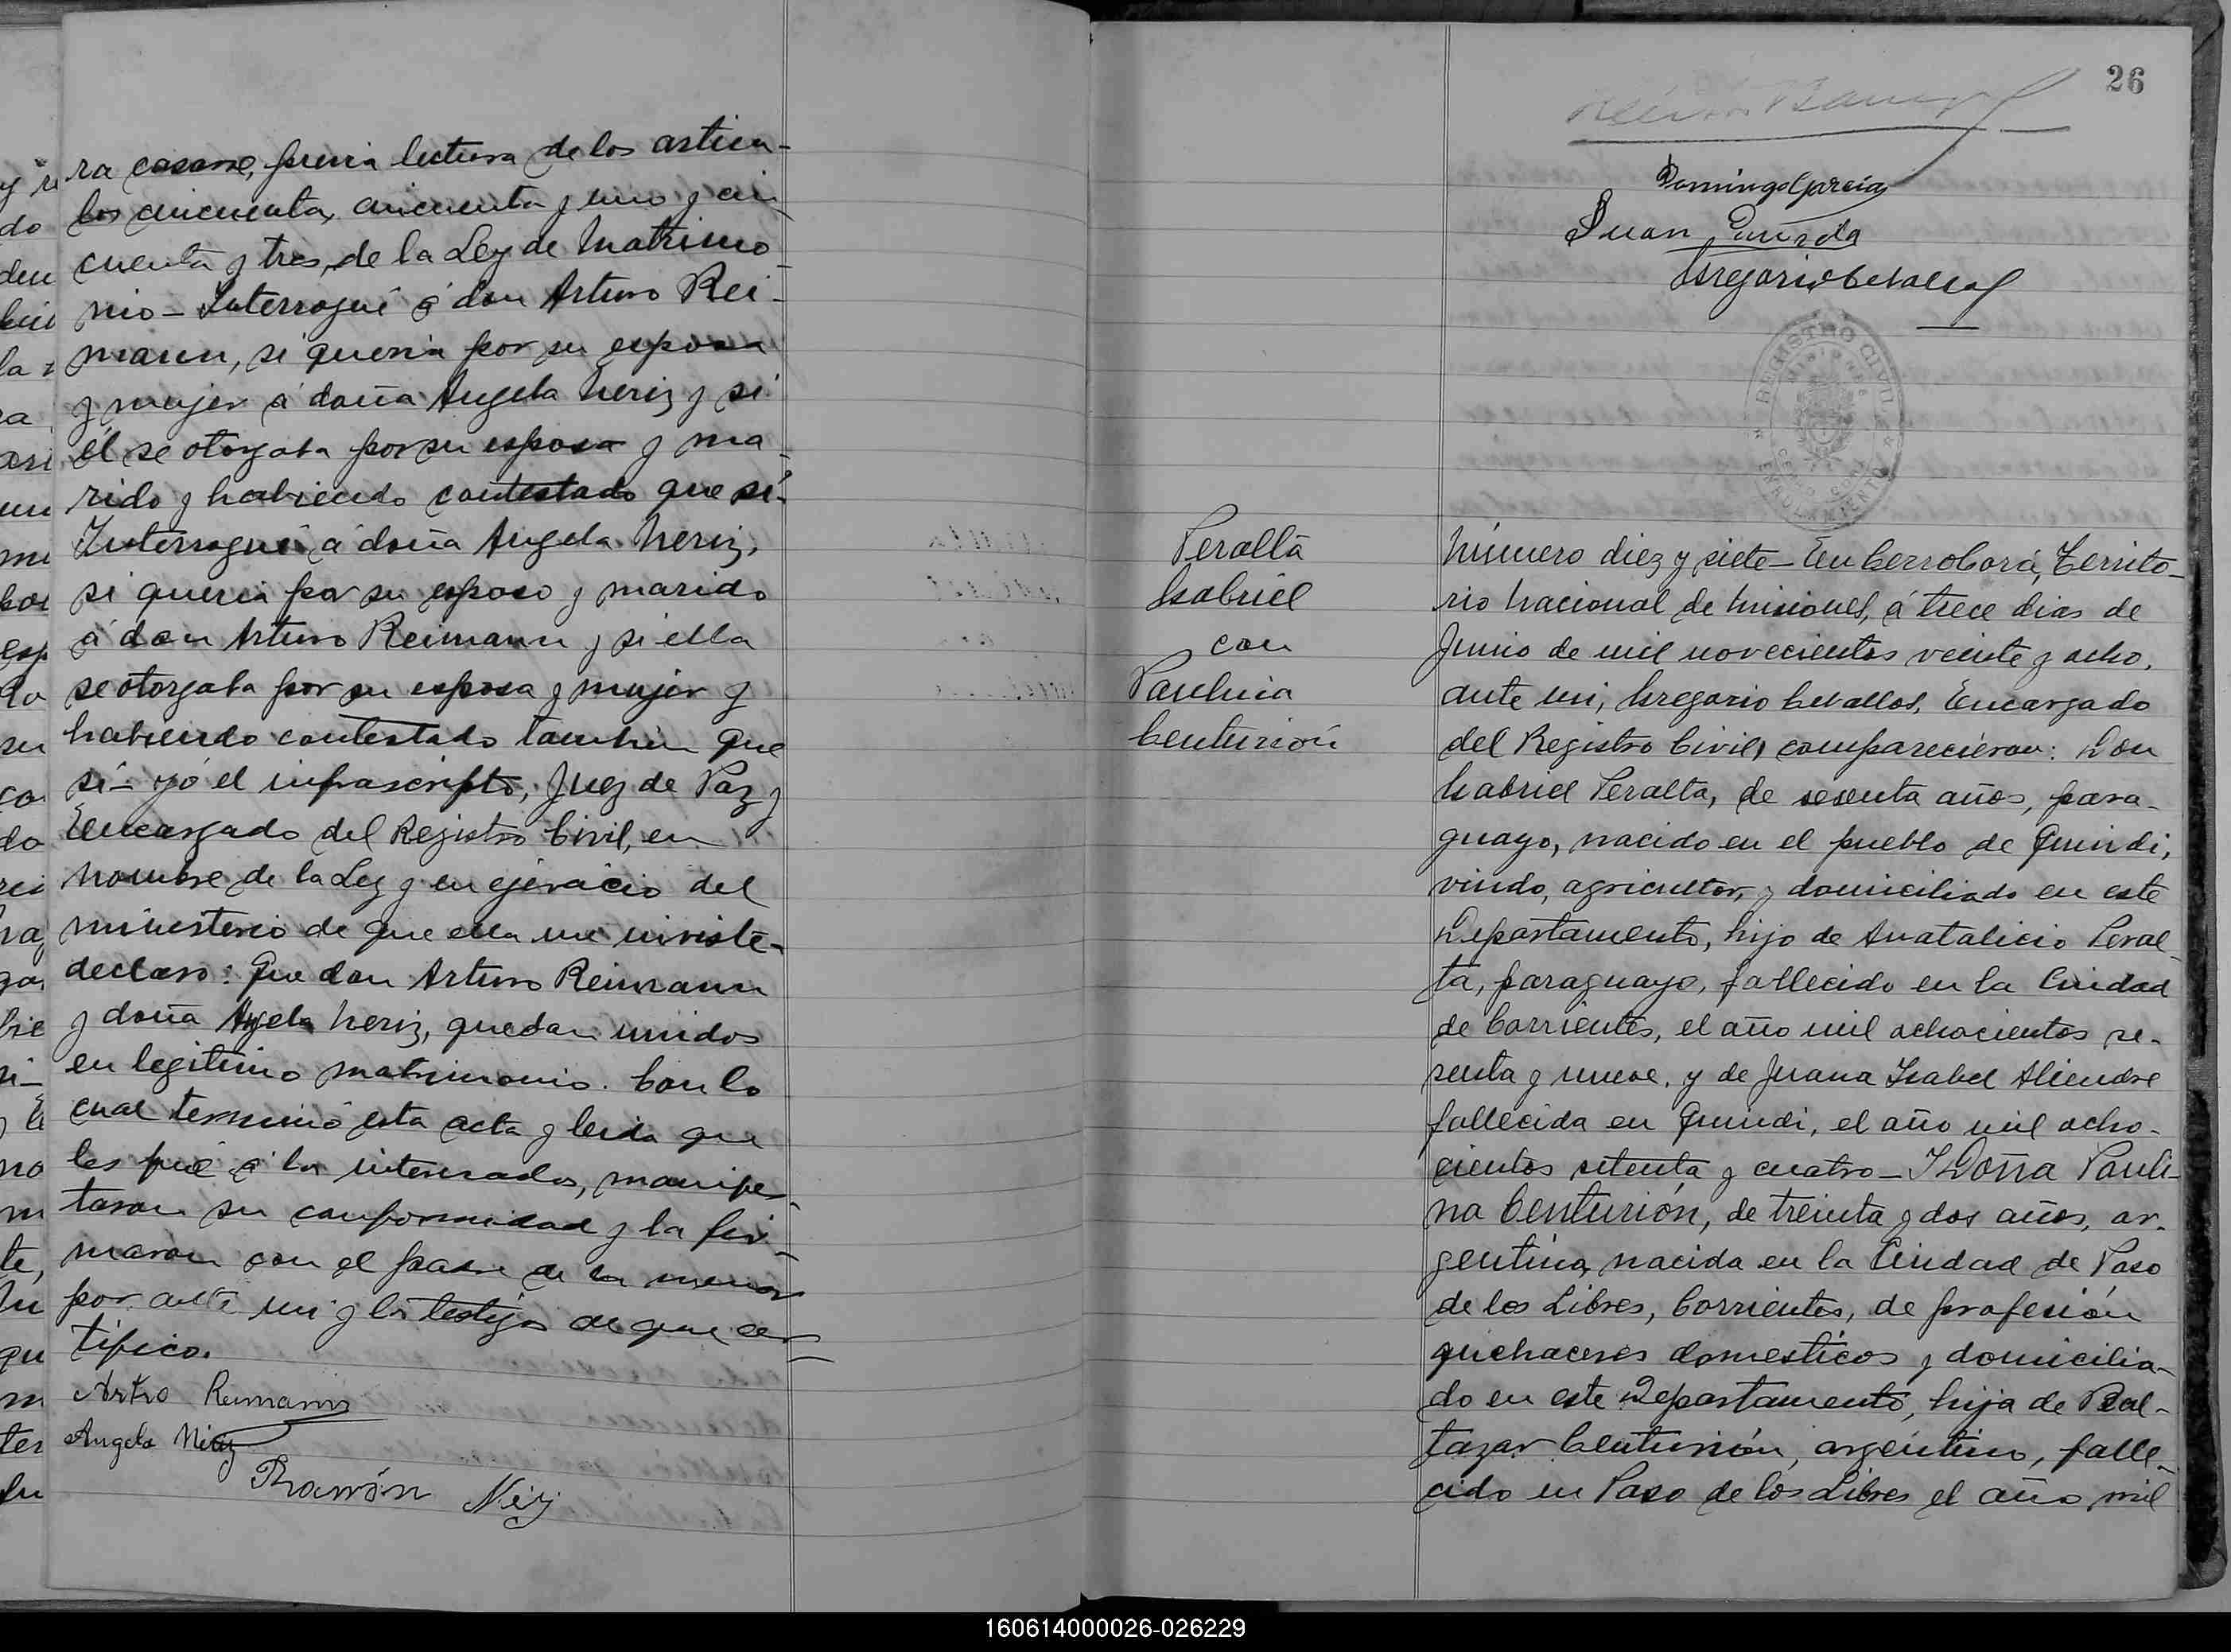 ra casarse, previa lectura de los articu-
los cincuenta, cincuenta y uno y cin
cuenta y tres, de la Ley de Matrimo
nio - Interrogué á don Arturo Rei-
mann, si queria por su esposa
y mujer á doña Angela Neriz y si
él se otorgaba por su esposo y ma-
rido y habiendo contestado que sí.
Interrogué á doña Angela Neriz,
si queria por su esposo y marido
á don Arturo Reimann y si ella
se otorgaba por su esposa y mujer y
habiendo contestado tambien que
sí - yo el infrascripto, Juez de Paz y
Encargado del Registro Civil, en
nombre de la Ley y en ejercicio del
ministerio de que ella me inviste-
declaro: Que don Arturo Reimann
y doña Angela Neriz, quedan unidos
en legitimo matrimonio. Con lo
cual terminó esta acta y leida que
les fué á los interesados, manifes-
taron su conformidad y la fir-
maron con el padre de la menor
por ante mi y los testigos de que cer
tifico.
Arturo Reimann
Angela
Ramón
26
Domingo Garcia
Juan
Gregorio Cevallos
REGISTRO CIVIL
ENROLAMIENTO
Peralta
Gabriel
con
Paulina
Centurión
Número diez y siete - En Cerro Corá, Territo-
rio Nacional de Misiones, á trece dias de
Junio de mil novecientos veinte y ocho,
ante mi, Gregorio Cevallos, Encargado
del Registro Civil, comparecieron: Don
Gabriel Peralta, de sesenta años, para-
guayo, nacido en el pueblo de Quindi,
viudo, agricultor, y domiciliado en este
Departamento, hijo de Anatalicio Peral-
ta, paraguayo, fallecido en la Ciudad
de Corrientes, el año mil ochocientos se-
senta y nueve, y de Juana Isabel Aliendre
fallecida en Quindi, el año mil ocho-
cientos setenta y cuatro - Y Doña Pauli-
na Centurión, de treinta y dos años, ar-
gentina, nacida en la Ciudad de Paso
de los Libres, Corrientes, de profesión
quehaceres domesticos y domicilia-
do en este Departamento, hija de Bal-
tazar Centurión, argentino, falle-
cido en Paso de los Libres el año mil
160614000026-026229